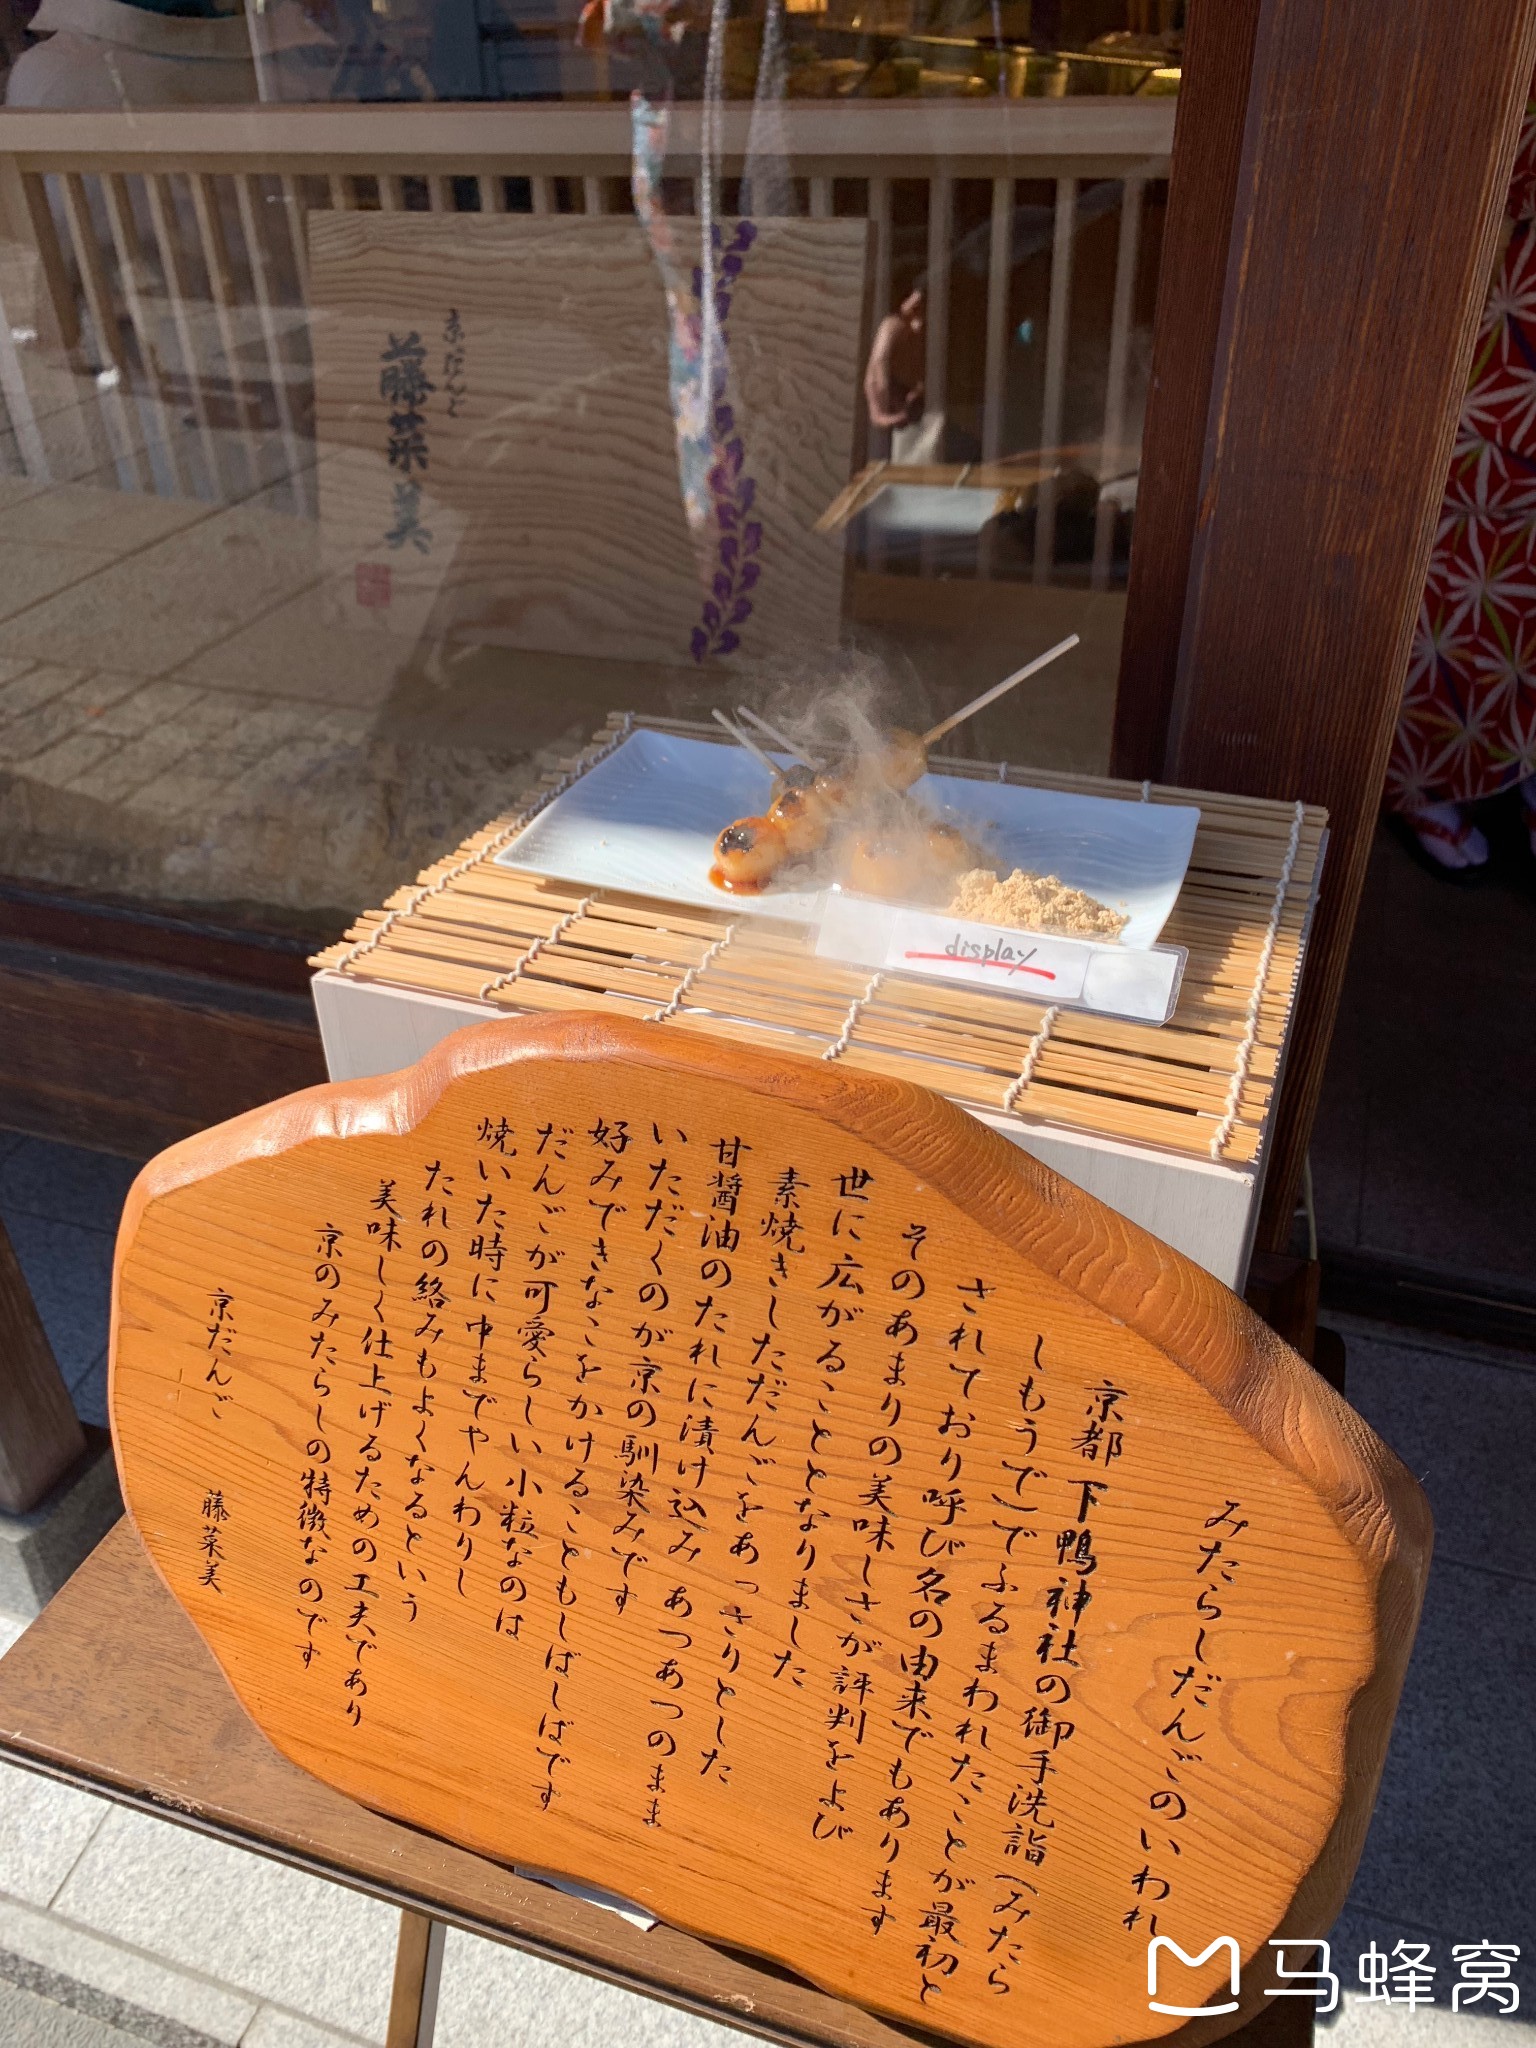 京だんご
藤菜美
display
みたらしだんごのいわれ
京都 下鴨神社の御手洗詣(みたら
しもうで)でふるまわれたことが最初と
されており呼び名の由来でもあります
そのあまりの美味しさが評判をよび
世に広がることとなりました
素焼きしただんごをあっさりとした
甘醤油のたれに漬け込み あつあつのまま
いただくのが京の馴染みです
好みできなこをかけることもしばしばです
だんごが可愛らしい小粒なのは
焼いた時に中までやんわりし
たれの絡みもよくなるという
美味しく仕上げるための工夫であり
京のみたらしの特徴なのです
京だんご 藤菜美
马蜂窝